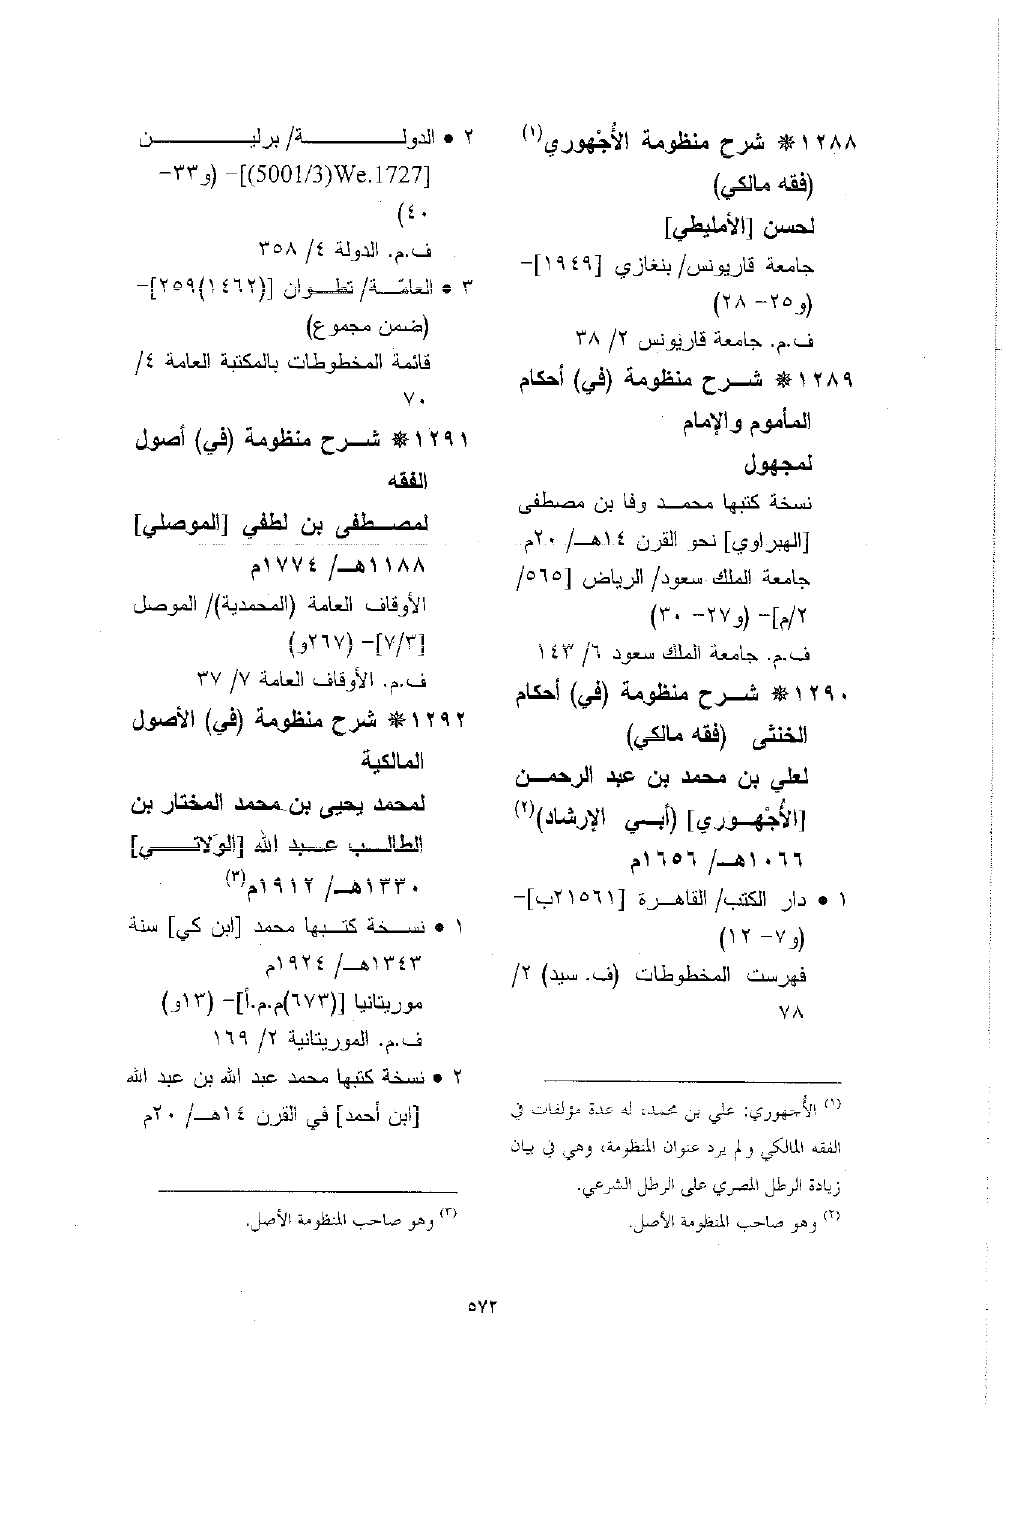 ١٢٨٨* شرح منظومة الأُجْهوري(١)
(فقه مالكي)
لحسن [الأمليطي]
جامعة قاريونس/ بنغازي [١٩٤٩]-
(و٢٥- ٢٨)
ف.م. جامعة قاريونس ٢/ ٣٨
١٢٨٩* شرح منظومة (في) أحكام
المأموم والإمام
لمجهول
نسخة كتبها محمد وفا بن مصطفى
[الهبراوي] نحو القرن ١٤هـ/ ٢٠م
جامعة الملك سعود/ الرياض [٥٦٥/
٢/م]- (و٢٧- ٣٠)
ف.م. جامعة الملك سعود ٦/ ١٤٣
١٢٩٠* شرح منظومة (في) أحكام
الخنثى (فقه مالكي)
لعلي بن محمد بن عبد الرحمن
[الأُجْهوري] (أبي الإرشاد)(٢)
١٠٦٦هـ/ ١٦٥٦م
١ • دار الكتب/ القاهرة [٢١٥٦١ب]-
(و٧- ١٢)
فهرست المخطوطات (ف. سيد) ٢/
٧٨
(١) الأُجهوري: علي بن محمد، له عدة مؤلفات في
الفقه المالكي ولم يرد عنوان المنظومة، وهي في بيان
زيادة الرطل المصري على الرطل الشرعي.
(٢) وهو صاحب المنظومة الأصل.
٢ • الدولة/ برلين
[(5001/3)We.1727]- (و٣٣-
٤٠)
ف.م. الدولة ٤/ ٣٥٨
٣ • العامّة/ تطوان [(١٤٦٢)٢٥٩]-
(ضمن مجموع)
قائمة المخطوطات بالمكتبة العامة ٤/
٧٠
١٢٩١* شرح منظومة (في) أصول
الفقه
لمصطفى بن لطفي [الموصلي]
١١٨٨هـ/ ١٧٧٤م
الأوقاف العامة (المحمدية)/ الموصل
[٧/٣]- (٢٦٧و)
ف.م. الأوقاف العامة ٧/ ٣٧
١٢٩٢* شرح منظومة (في) الأصول
المالكية
لمحمد يحيى بن محمد المختار بن
الطالب عبد الله [الوَلاتي]
١٣٣٠هـ/ ١٩١٢م(٣)
١ • نسخة كتبها محمد [ابن كي] سنة
١٣٤٣هـ/ ١٩٢٤م
موريتانيا [(٦٧٣)م.م.أ]- (١٣و)
ف.م. الموريتانية ٢/ ١٦٩
٢ • نسخة كتبها محمد عبد الله بن عبد الله
[ابن أحمد] في القرن ١٤هـ/ ٢٠م
(٣) وهو صاحب المنظومة الأصل.
٥٧٢